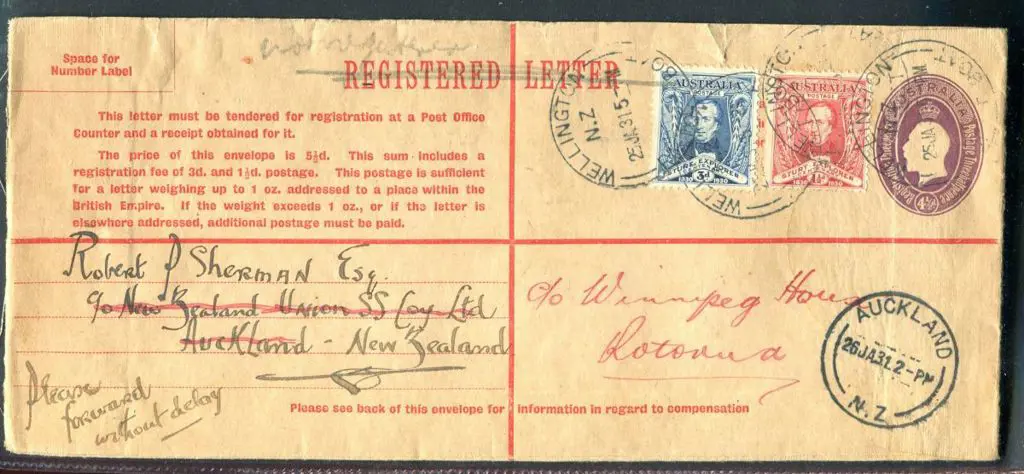 Space for
Number Label
REGISTERED LETTER
This letter must be tendered for registration at a Post Office
Counter and a receipt obtained for it.
The price of this envelope is 5½d. This sum includes a
registration fee of 3d. and 1½d. postage. This postage is sufficient
for a letter weighing up to 1 oz. addressed to a place within the
British Empire. If the weight exceeds 1 oz., or if the letter is
elsewhere addressed, additional postage must be paid.
WELLINGTON
N.Z
25JA31 5-PM
AUSTRALIA
POSTAGE
STURT EXPLORER
1830 3d 1930
AUSTRALIA
POSTAGE
STURT EXPLORER
1830 1½d 1930
AUSTRALIA
4½d
25JA
Robert P Sherman Esq.
c/o New Zealand Union SS Coy Ltd
Auckland - New Zealand
Please
forward
without delay
c/o Winnipeg House
Rotorua
AUCKLAND
26JA31.2-PM
N.Z
Please see back of this envelope for information in regard to compensation